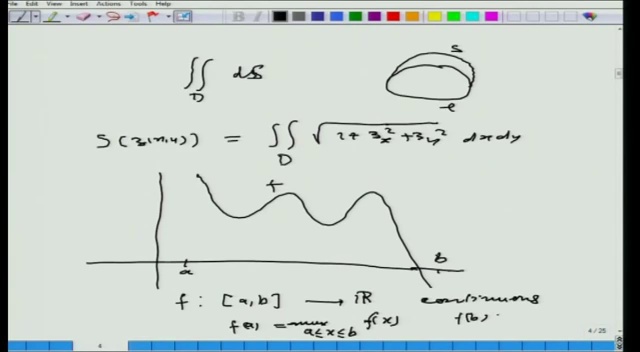 File Edit View Insert Actions Tools Help
∬ dS
D
S
S(z(x,y)) = ∬ √(1+z_x²+z_y²) dx dy
D
f
a
b
f : [a,b] → ℝ continuous
f(a) = max f(x) f(b)
a≤x≤b
4 / 25
4